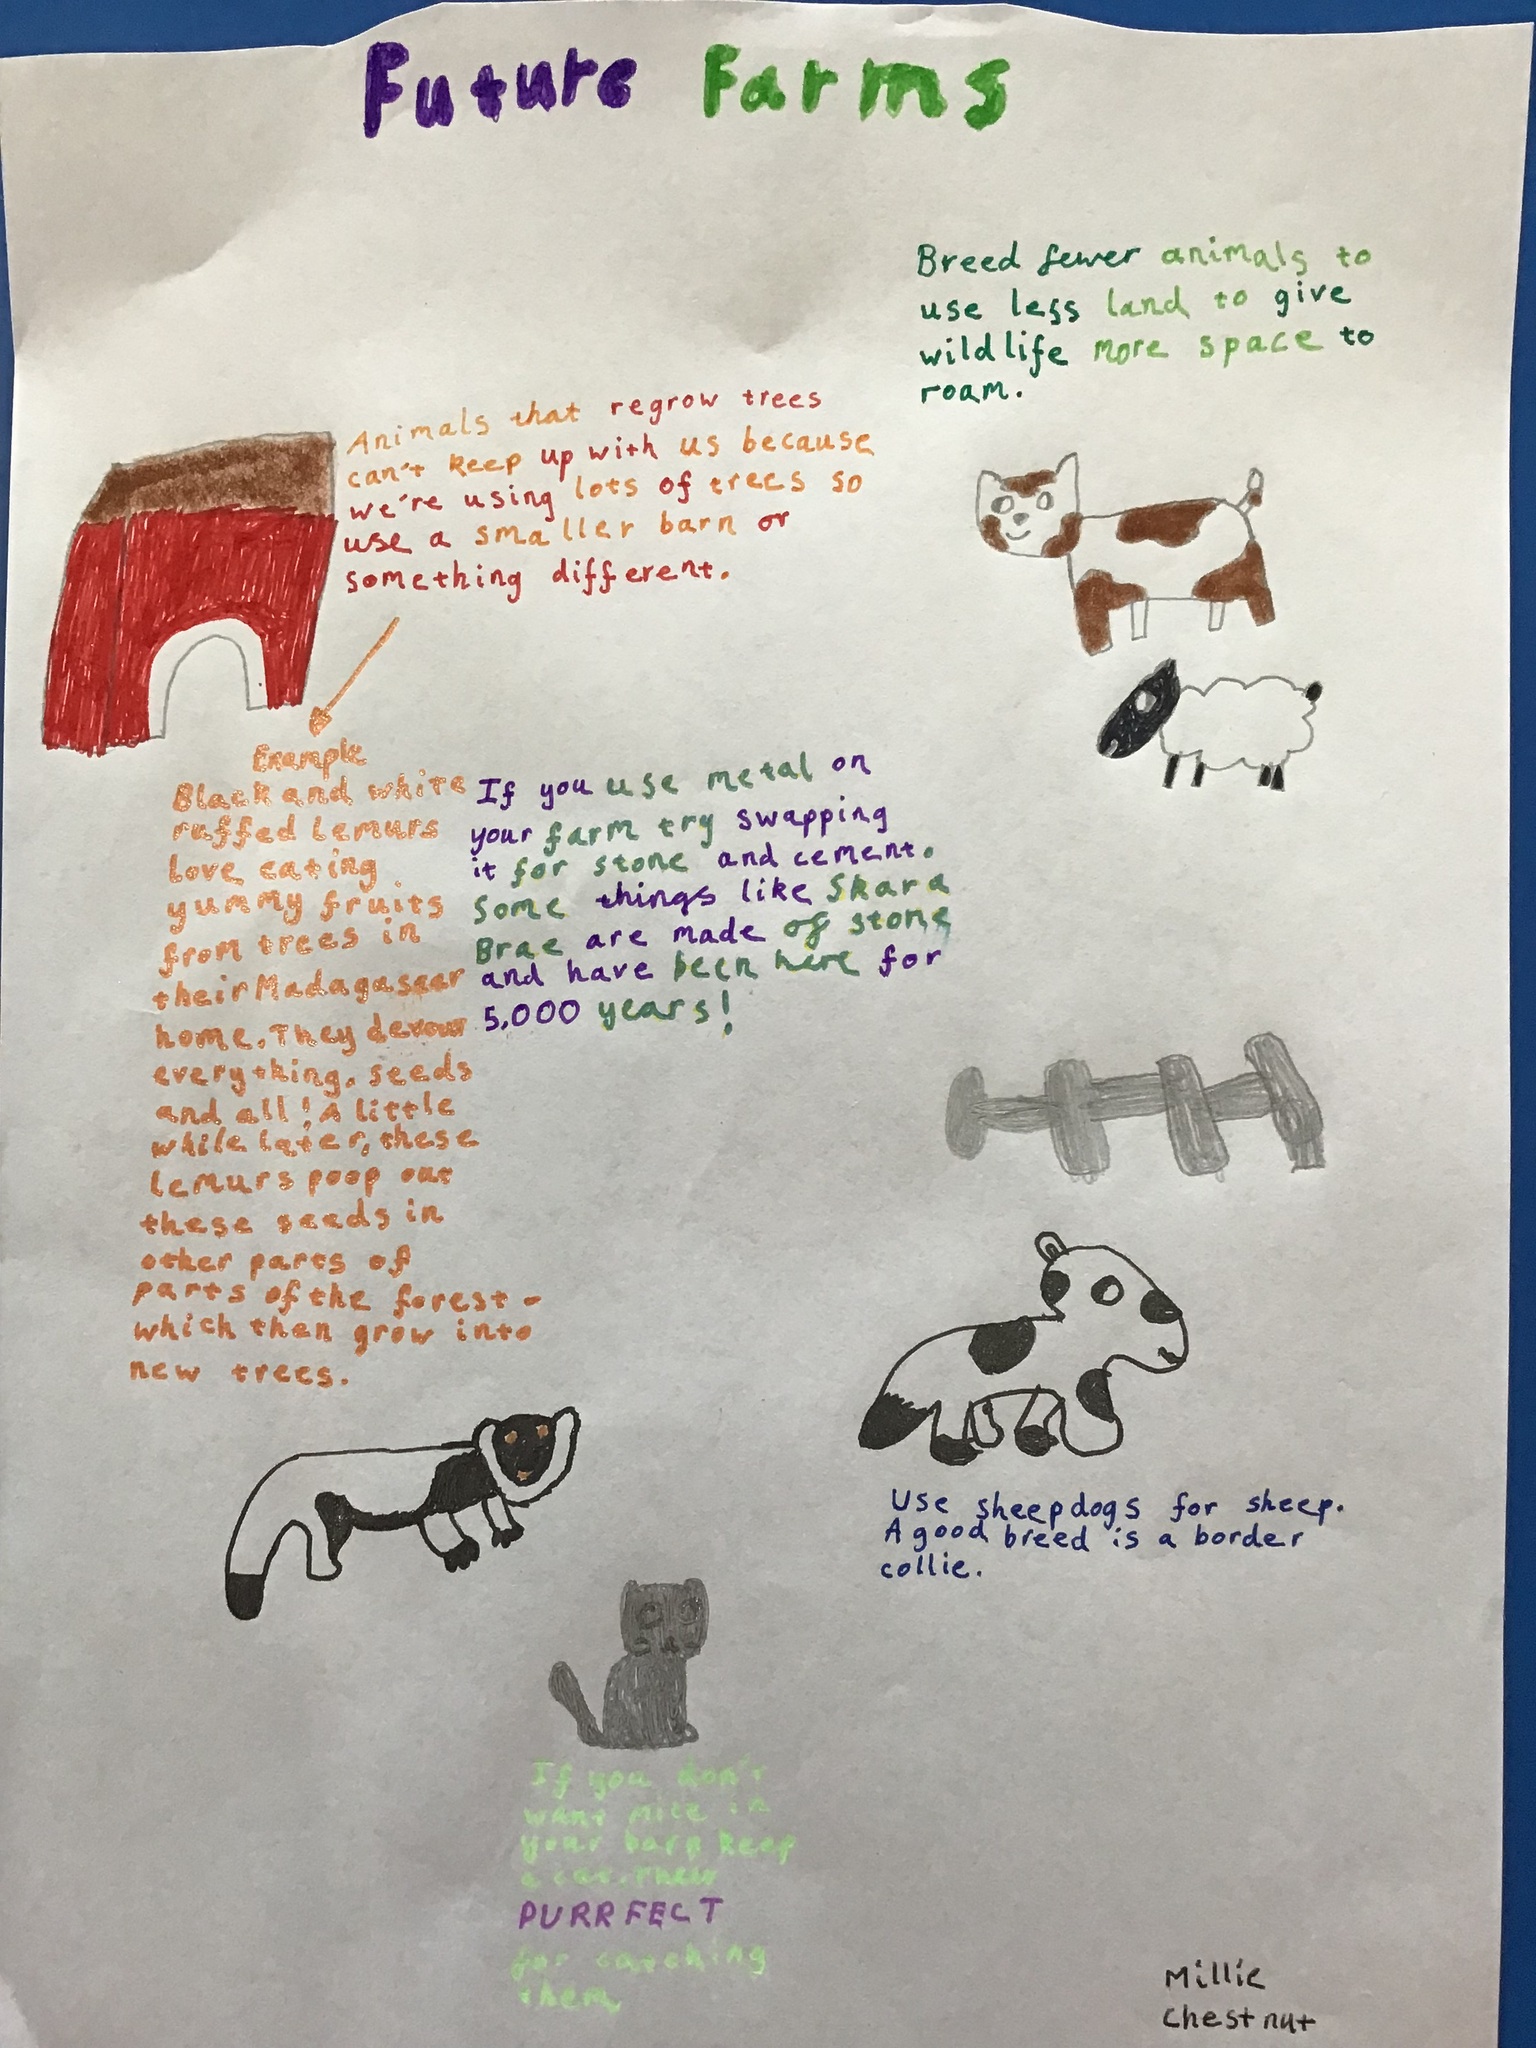 Future Farms
Breed fewer animals to
use less land to give
wildlife more space to
roam.
Animals that regrow trees
can't keep up with us because
we're using lots of trees so
use a smaller barn or
something different.
Example
Black and white
ruffed lemurs
love eating
yummy fruits
from trees in
their Madagascar
home. They devour
everything, seeds
and all! A little
while later, these
lemurs poop out
these seeds in
other parts of
parts of the forest -
which then grow into
new trees.
If you use metal on
your farm try swapping
it for stone and cement.
Some things like Skara
Brae are made of stone
and have been here for
5,000 years!
Use sheepdogs for sheep.
A good breed is a border
collie.
If you don't
want mice in
your barn keep
a cat.
PURRFECT
for catching
them
Millie
Chestnut